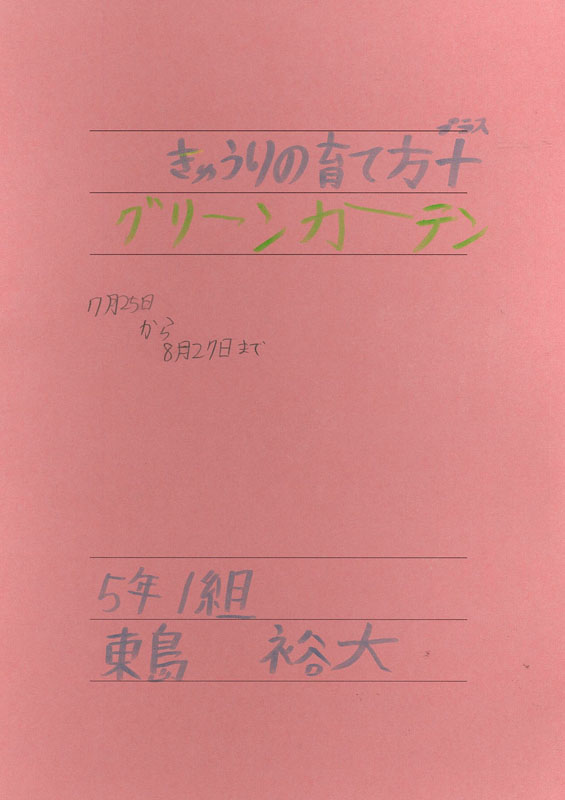 プラス
きゅうりの育て方+
グリーンカーテン
7月25日
から
8月27日まで
5年1組
東島 裕大